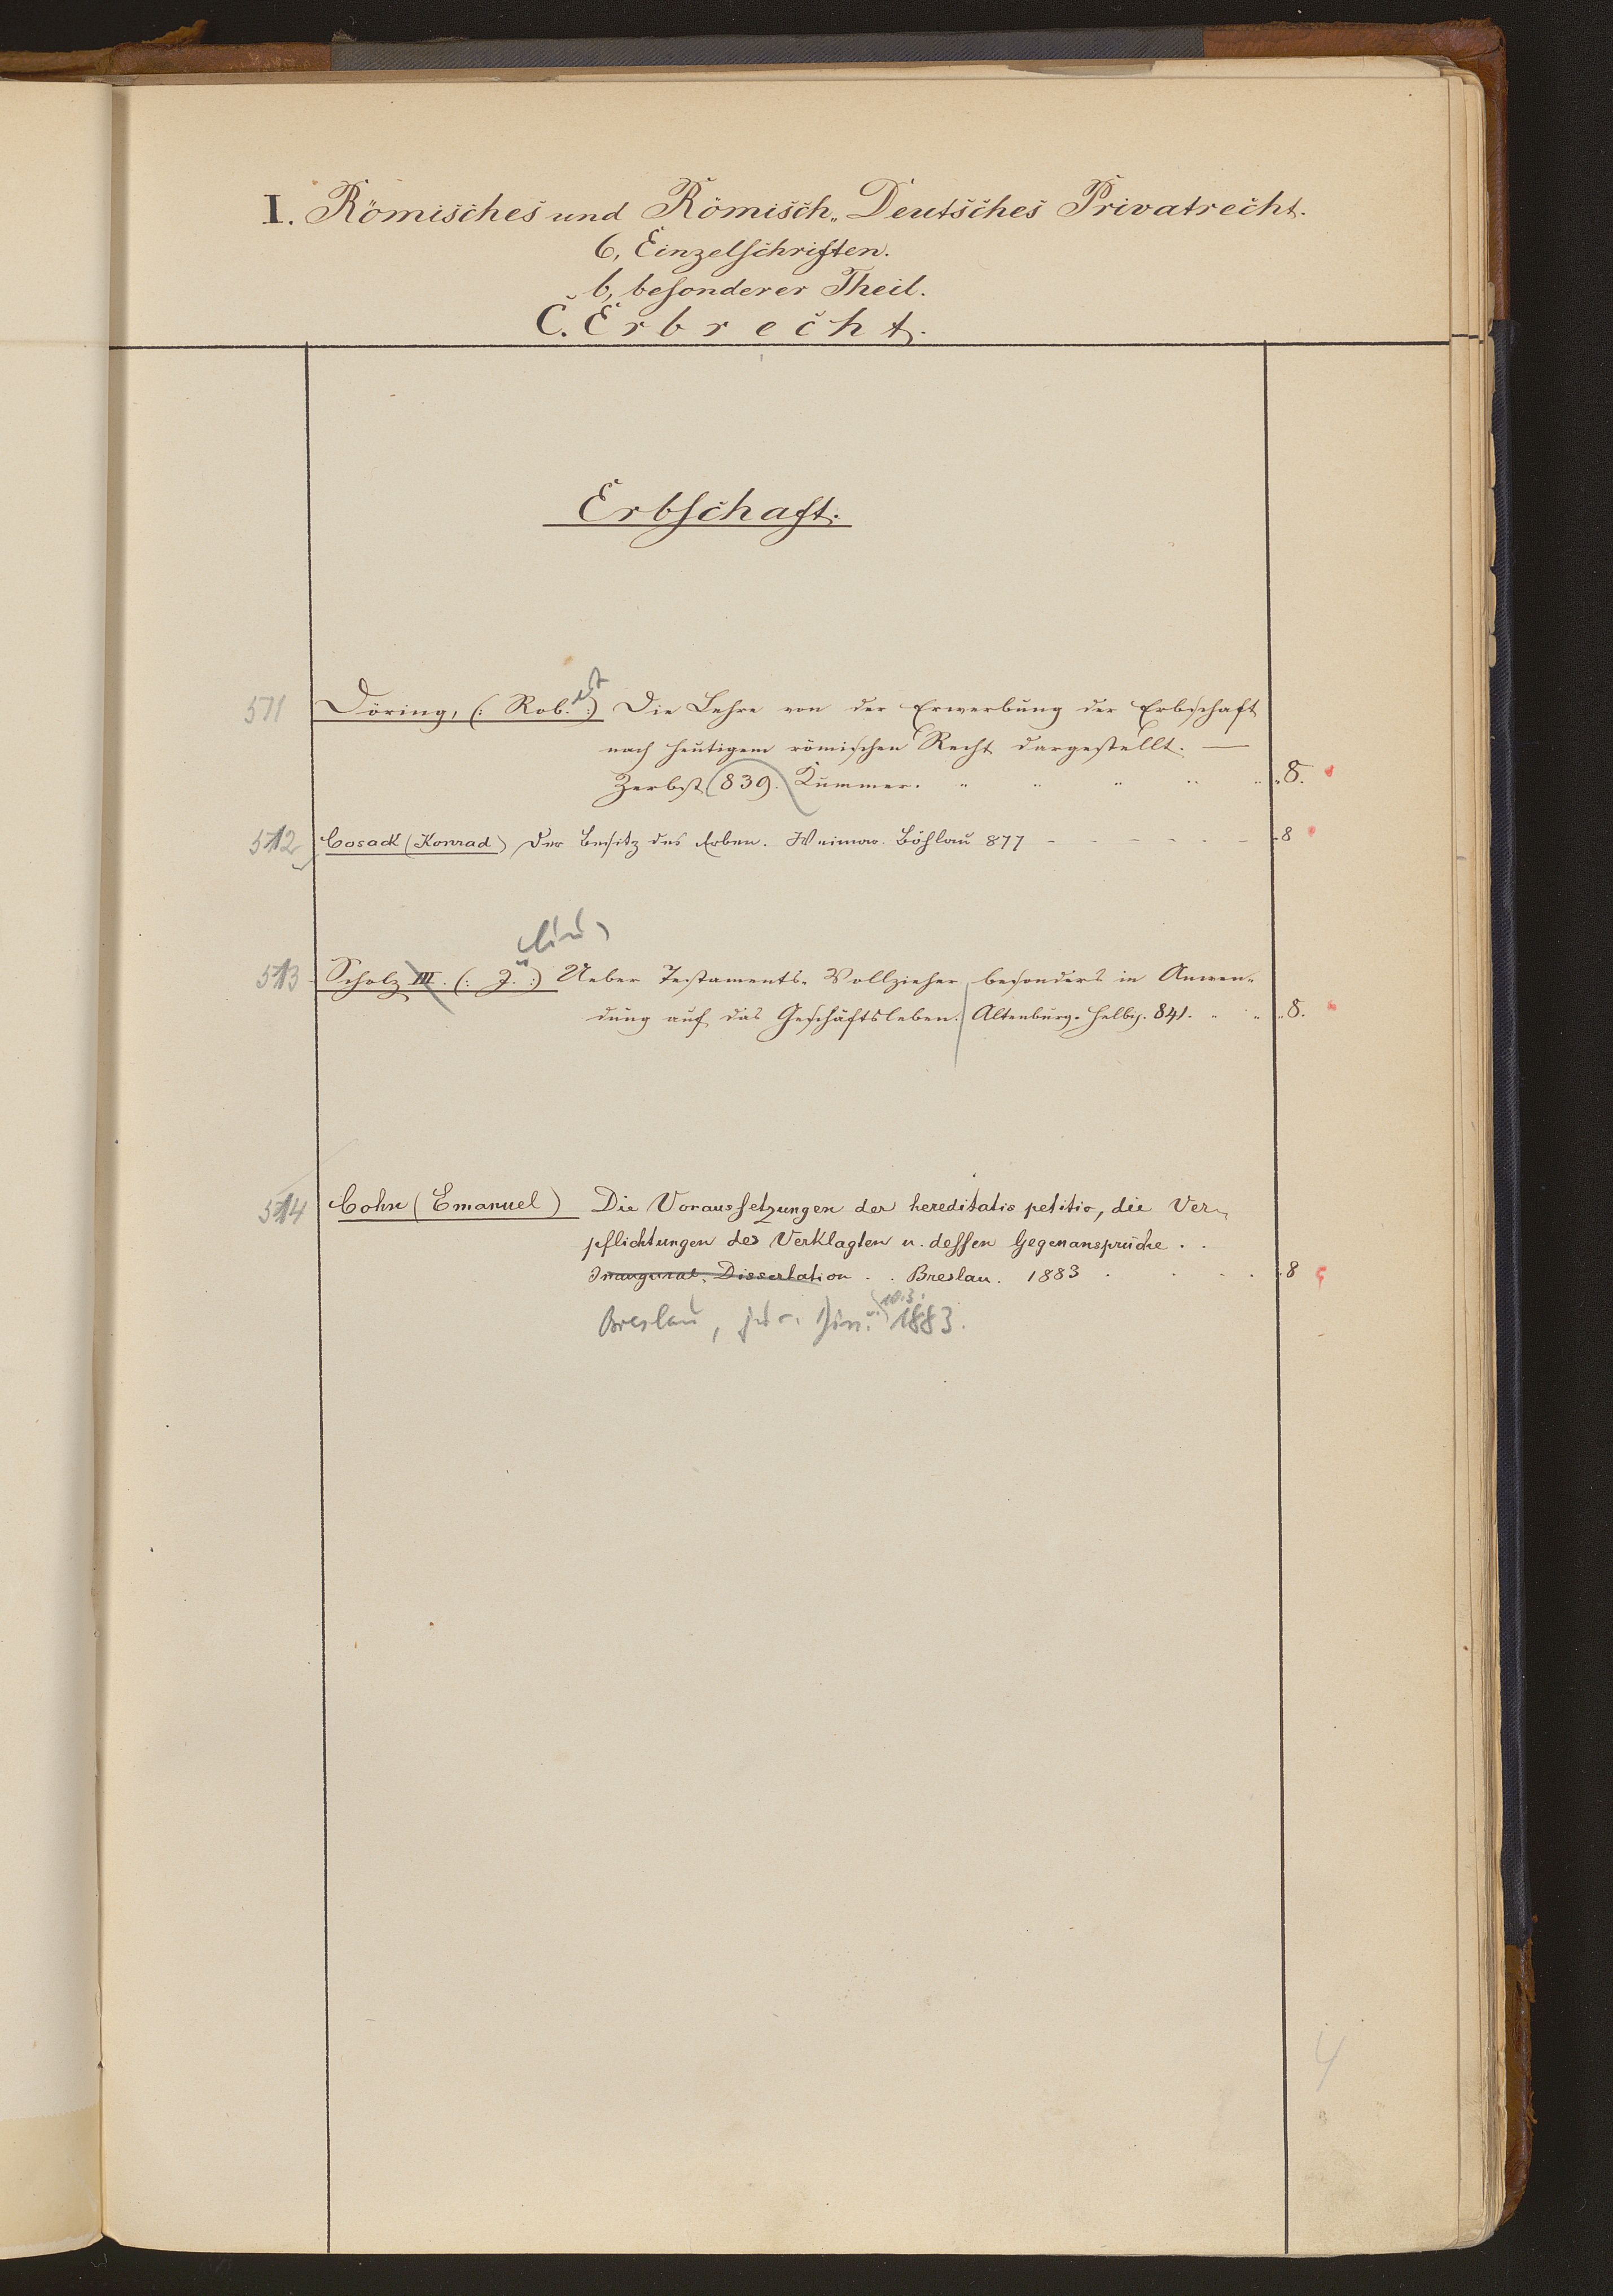 I. Römisches und Römisch-Deutsches Privatrecht.
6, Einzelschriften.
b, besonderer Theil.
C. Erbrecht.
Erbschaft.
511 Döring, (: Rob. :) Die Lehre von der Erwerbung der Erbschaft
nach heutigem römischen Recht dargestellt. —
Zerbst 839. Kummer. " " " " " 8.
512 Cosack (Konrad) Der Besitz des Erben. Weimar. Böhlau 877 - - - - - - - 8
513 Scholz III. (: J. :) Ueber Testaments-Vollzieher besonders in Anwen-
dung auf das Geschäftsleben. Altenburg. Helbig. 841. " " " 8.
514 Cohn (Emanuel) Die Voraussetzungen der hereditatis petitio, die Ver-
pflichtungen des Verklagten u. dessen Gegenansprüche . .
Inaugural-Dissertation . . Breslau. 1883 . . . . . 8
10.3.
Breslau, jur. Diss. v. 1883.
4